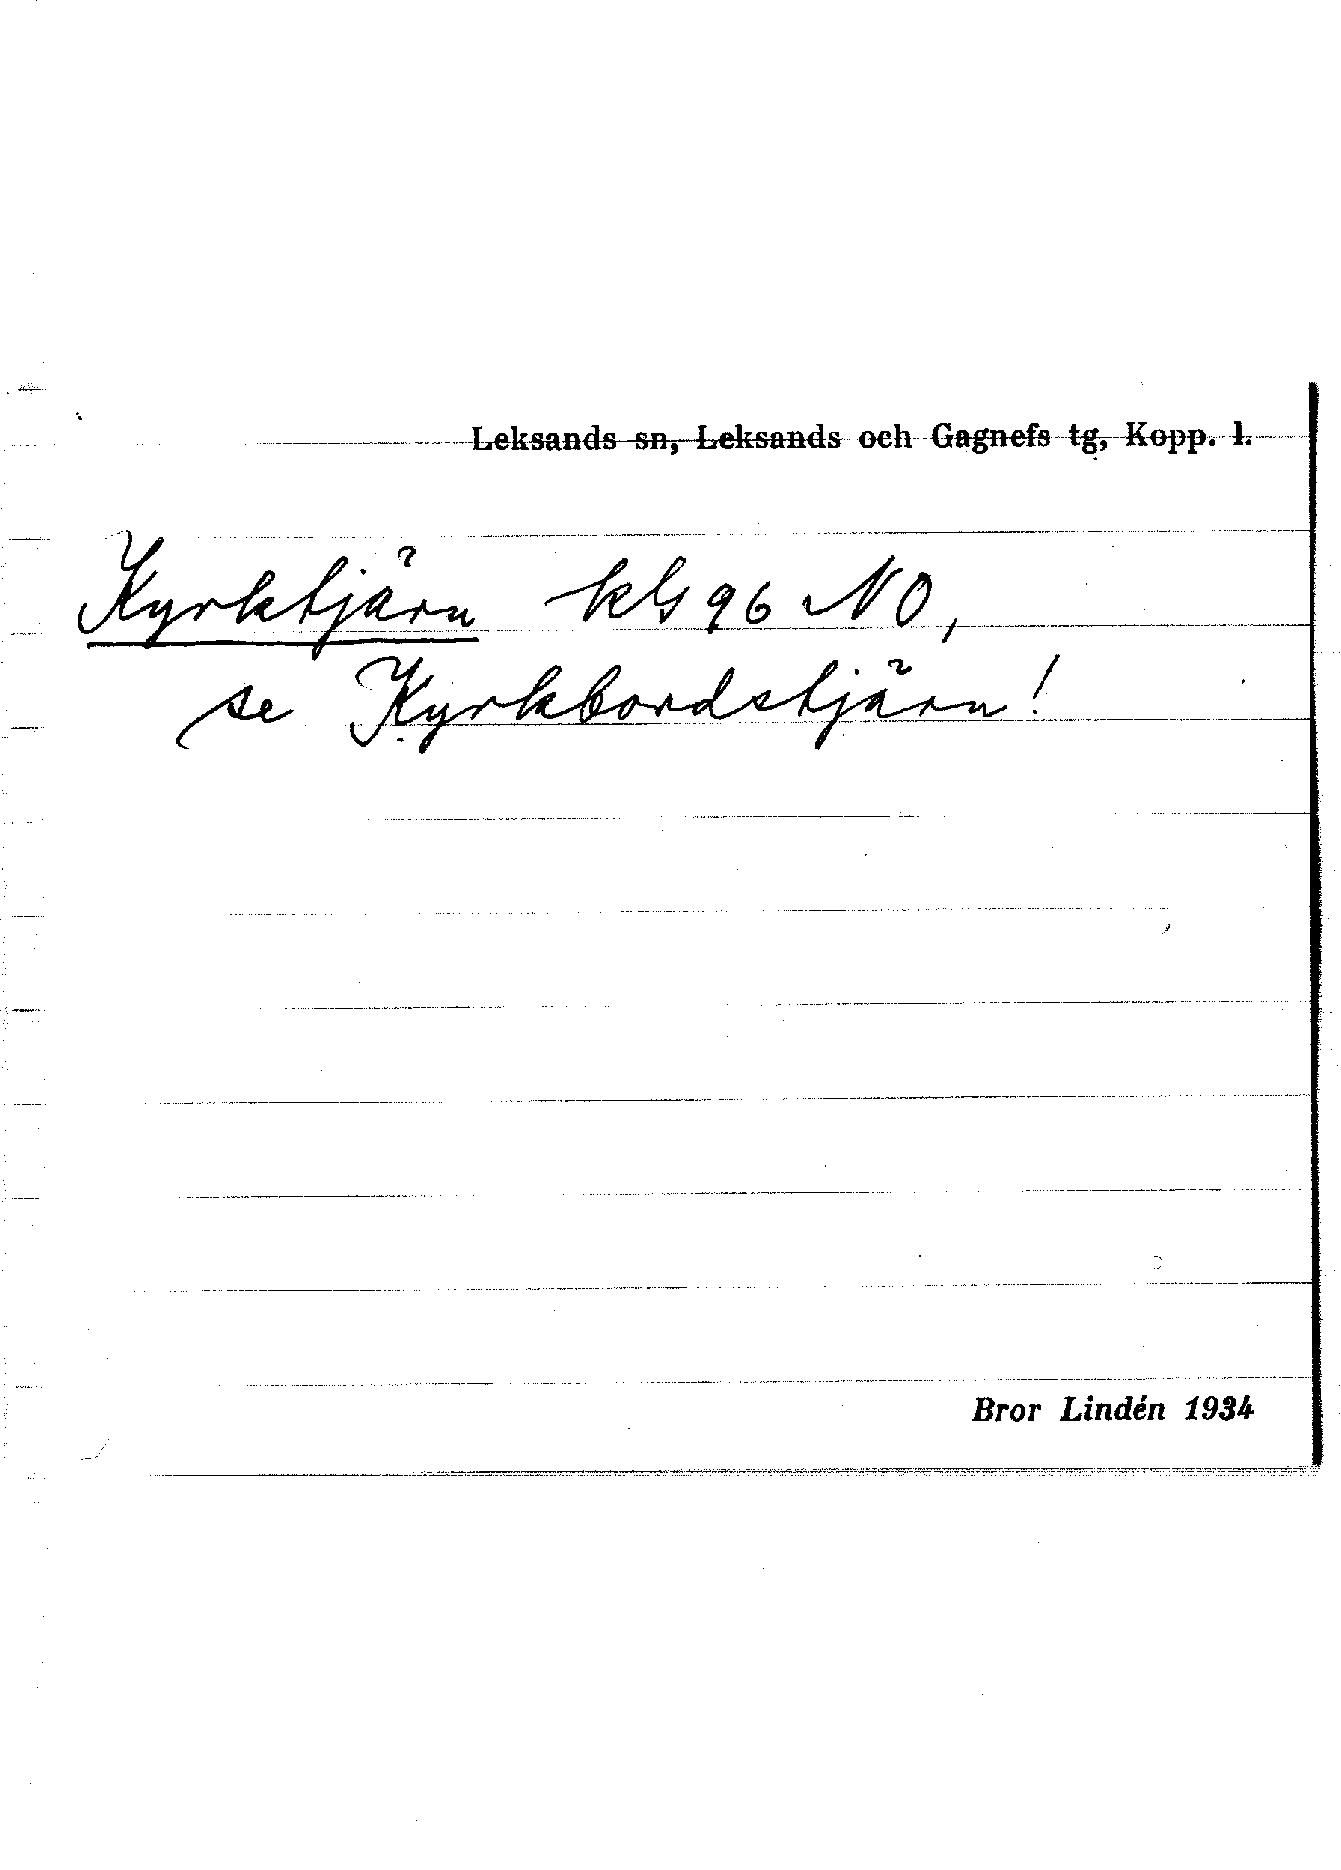 Leksands sn, Leksands och Gagnefs tg, Kopp. l.
Kyrktjärn kG 96 NO,
se Kyrkbordstjärn!
Bror Lindén 1934